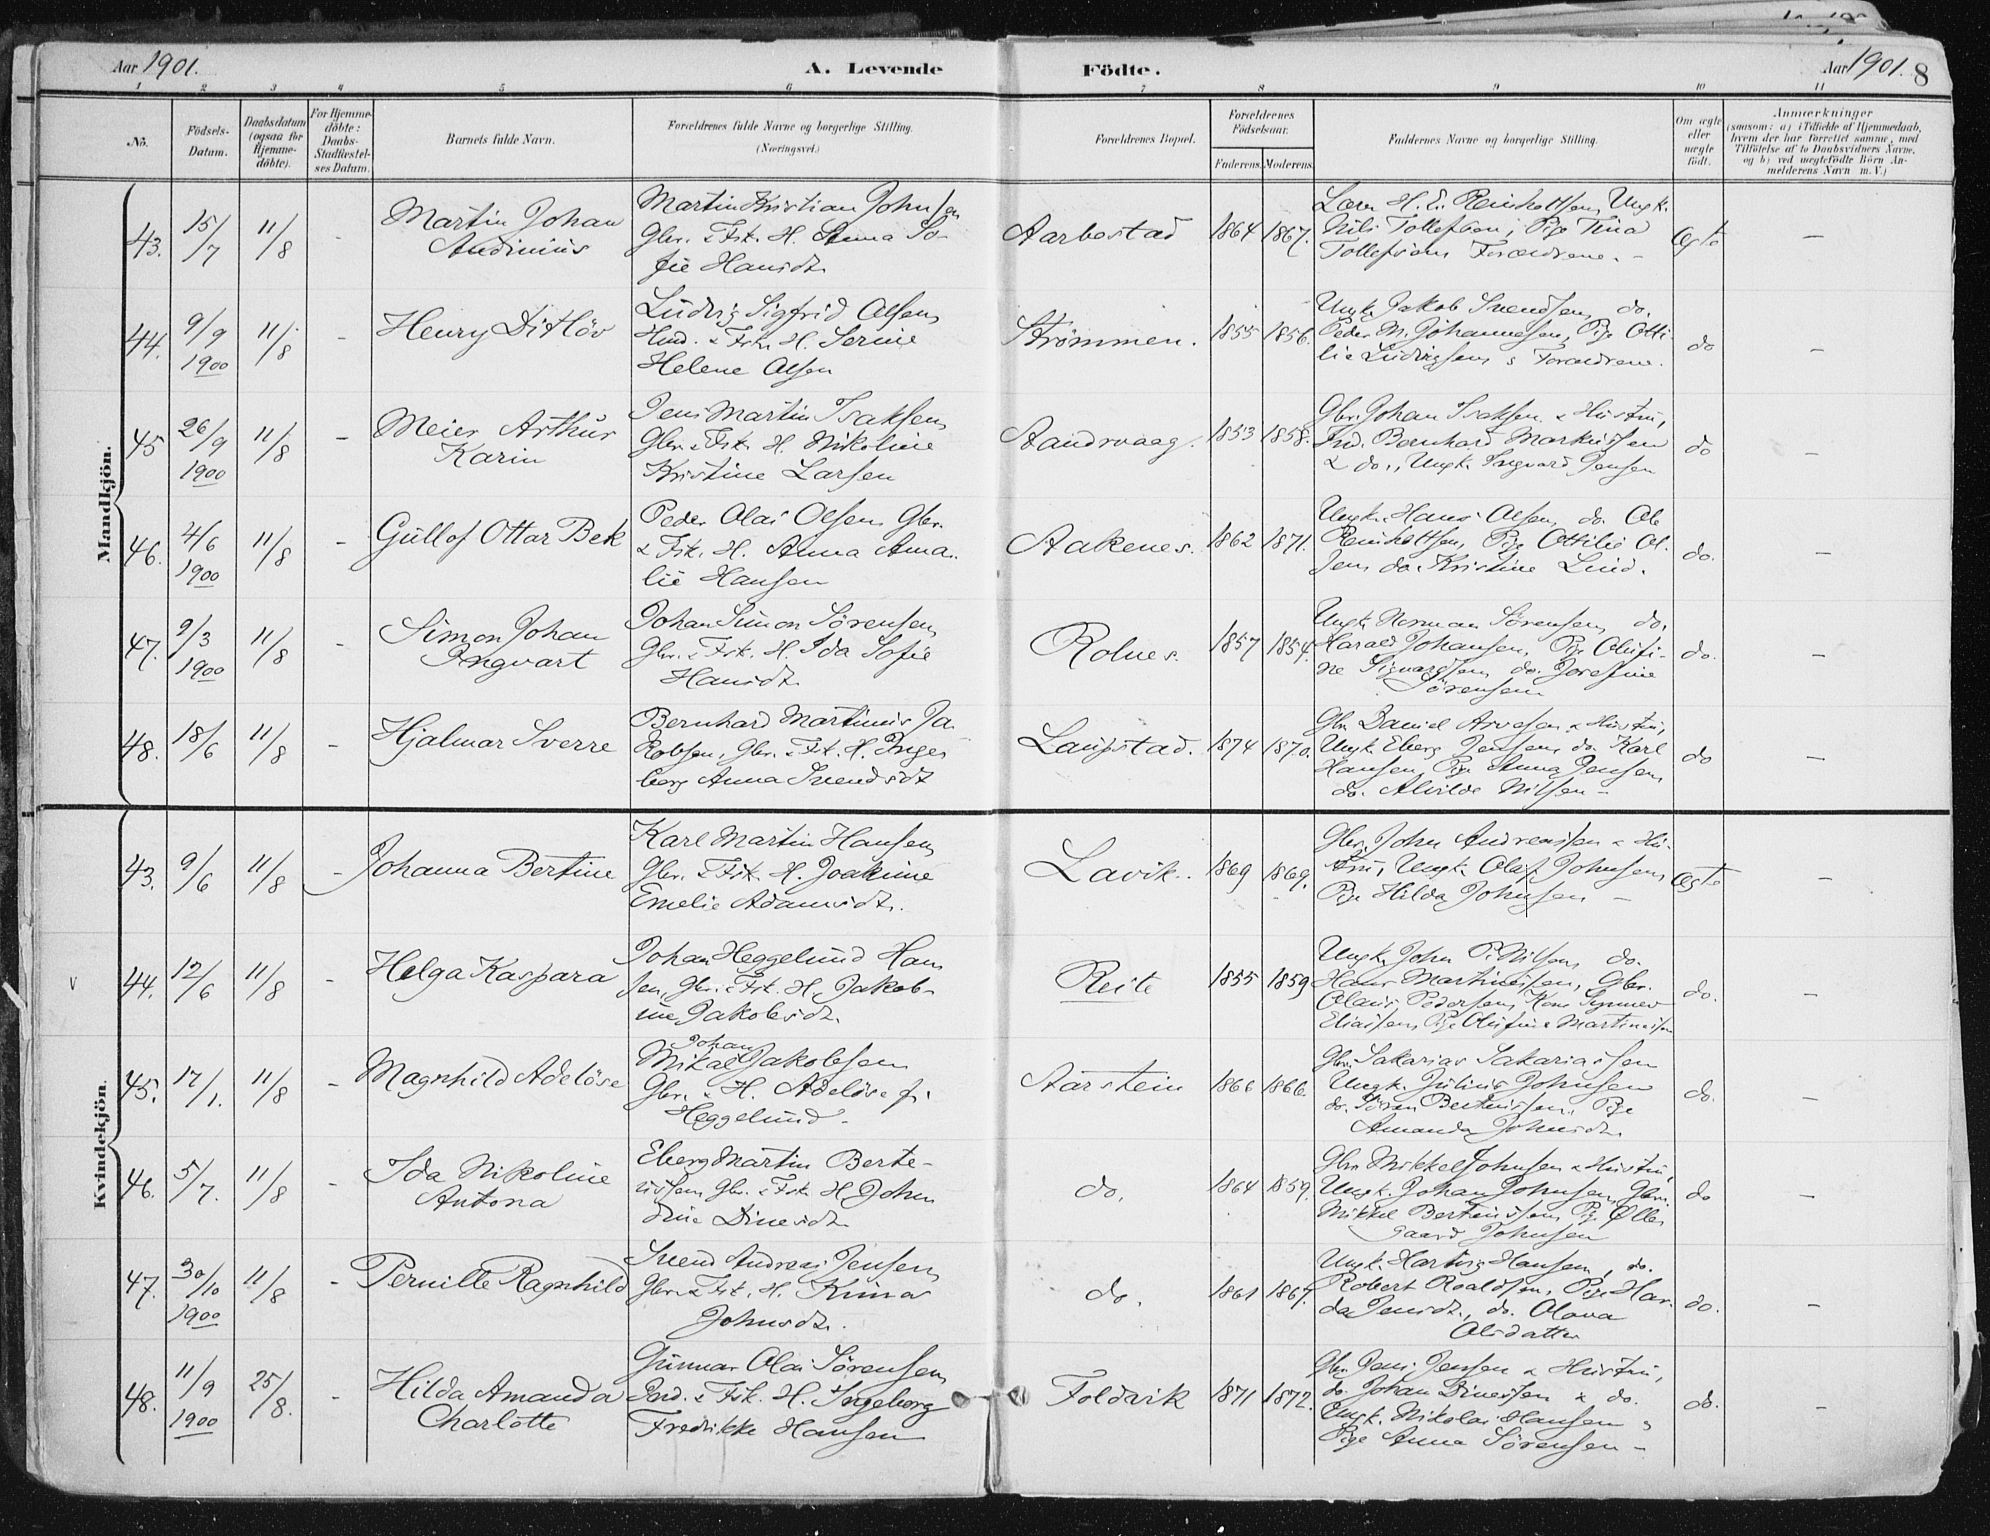 Aar 1901.
A. Levende
Födte.
Aar 1901.
8
1 2 3 4 5 6 7 8 9 10 11
No.
Födsels-
Datum.
Daabsdatum
(ogsaa for
Hjemme-
döbte).
For Hjemme-
döbte:
Daabs-
Stadfæstel-
ses Datum.
Barnets fulde Navn.
Forældrenes fulde Navne og borgerlige Stilling.
(Næringsvei.)
Forældrenes Bopæl.
Forældrenes
Födselsaar.
Faderens. Moderens.
Faddernes Navne og borgerlige Stilling.
Om ægte
eller
uægte
födt.
Anmærkninger
(saasom: a) i Tilfælde af Hjemmedaab,
hvem der har forrettet samme, med
Tilföielse af to Daabsvidners Navne,
og b) ved uægtefödte Börn An-
melderens Navn m. V.)
Mandkjön.
43. 15/7 11/8 - Martin Johan
Andinius
Martin Kristian Johnsen
Gbr. & Fsk. H. Anna So-
fie Hansdt.
Aarbostad 1864 1867.
H. E. Reinholtsen, Ungk.
Nils Tollefsen, Pige Tina
Tollefsen, Forældrene. -
Ægte -
44. 9/9 1900 11/8 - Henry Ditlöv
Ludvig Sigfrid Olsen,
Ind. & Fsk. H. Serine
Helene Olsen
Strømmen. 1855 1856.
Ungk. Jakob Svendsen, do.
Peder M. Johannesen, Pige Otti-
lie Ludvigsen, Forældrene.
do -
45 26/9 1900 11/8 - Meier Arthur
Karin
Jens Martin Isaksen,
Gbr. & Fsk. H. Nikoline
Kristine Larsen
Aandvaag. 1853 1858.
Gbr. Johan Isaksen & Hustru,
Ind. Bernhard Markussen
& do., Ungk. Ingvard Jensen
do -
46. 4/6 1900 11/8 - Gullof Ottar Bek
Peder Olai Olsen, Gbr.
& Fsk. H. Anna Ama-
lie Hansen
Aakenes. 1862 1871.
Ungk. Hans Olsen, do. Ole
Reinholtsen, Pige Ottilie Ol-
sen, do. Kristine Lind.
do. -
47. 9/3 1900 11/8 - Simon Johan
Ingvart
Johan Simon Sörensen,
Gbr. & Fsk. H. Ida Sofie
Hansdt.
Rolnes. 1857 1854.
Ungk. Norman Sörensen, do.
Harald Johansen, Pige Olufi-
ne Sigvardsen, do. Josefine
Sörensen
do. -
48. 18/6 11/8 - Hjalmar Sverre
Bernhard Martinus Ja-
kobsen, Gbr. & Fsk. H. Inge-
borg Anna Svendsdt
Laupstad. 1874 1870.
Gbr. Daniel Arnesen & Hustru,
Ungk. Eberg Jensen, do. Karl
Hansen, Pige Anna Jensen,
do. Alvilde Nilsen -
do -
Kvindekjön.
43. 9/6 11/8 - Johanna Bertine
Karl Martin Hansen,
Gbr. & Fsk. H. Joakime
Emelie Adamsdt.
Lavik. 1869 1869.
Gbr. John Andreassen & Hu-
stru, Ungk. Olaf Johnsen,
Pige Hilda Johnsen -
Ægte -
v 44. 12/6 11/8 - Helga Kaspara
Johan Heggelund Han-
sen, Gbr. & Fsk. H. Jakob-
ine Jakobsdt.
Reite 1855 1859
Ungk. John P. Nilsen, do.
Hans Martinussen, Gbr.
Olaus Pedersen, Kone
Eliassen, Pige Olufine Martinussen
do. -
45. 17/1. 11/8 - Magnhild Adelöse
Johan
Mikal Jakobsen
Gbr. & H. Adelöse f.
Heggelund -
Aarstein 1866 1866.
Gbr. Sakarias Sakariassen
Ungk. Julius Johnsen
do. Sören Berteussen, Pige
Amanda Johnsdt.
do. -
46. 5/7. 11/8 - Ida Nikoline
Antona
Eberg Martin Berte-
ussen, Gbr. & Fsk. H. John-
dine Dinesdt.
do. 1864 1859.
Gbr. Mikkel Johnsen & Hustru,
Ungk. Johan Johnsen, Gbr.
Mikkel Berteussen, Pige Olle-
gaard Johnsen
do -
47. 30/10 1900 11/8 - Pernille Ragnhild
Svend Andreas Jensen,
Gbr. & Fsk. H. Kima
Johnsdt.
do. 1861 1867.
Ungk. Hartvig Hansen, do.
Robert Roaldsen, Pige Har-
da Jensdt., do. Olava
Olsdatter
do. -
48. 11/9 1900 25/8. - Hilda Amanda
Charlotte
Gunnar Olai Sörensen,
Ind. & Fsk. H. Ingeborg
Fredrikke Hansen
Foldvik 1871 1872.
Gbr. Jens Jensen & Hustru,
do. Johan Dinessen & do.
Ungk. Nikolai Hansen,
Pige Anna Sörensen -
do. -